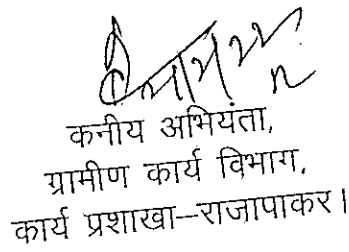 कनीय अभियंता,
ग्रामीण कार्य विभाग,
कार्य प्रशाखा–राजापाकर।